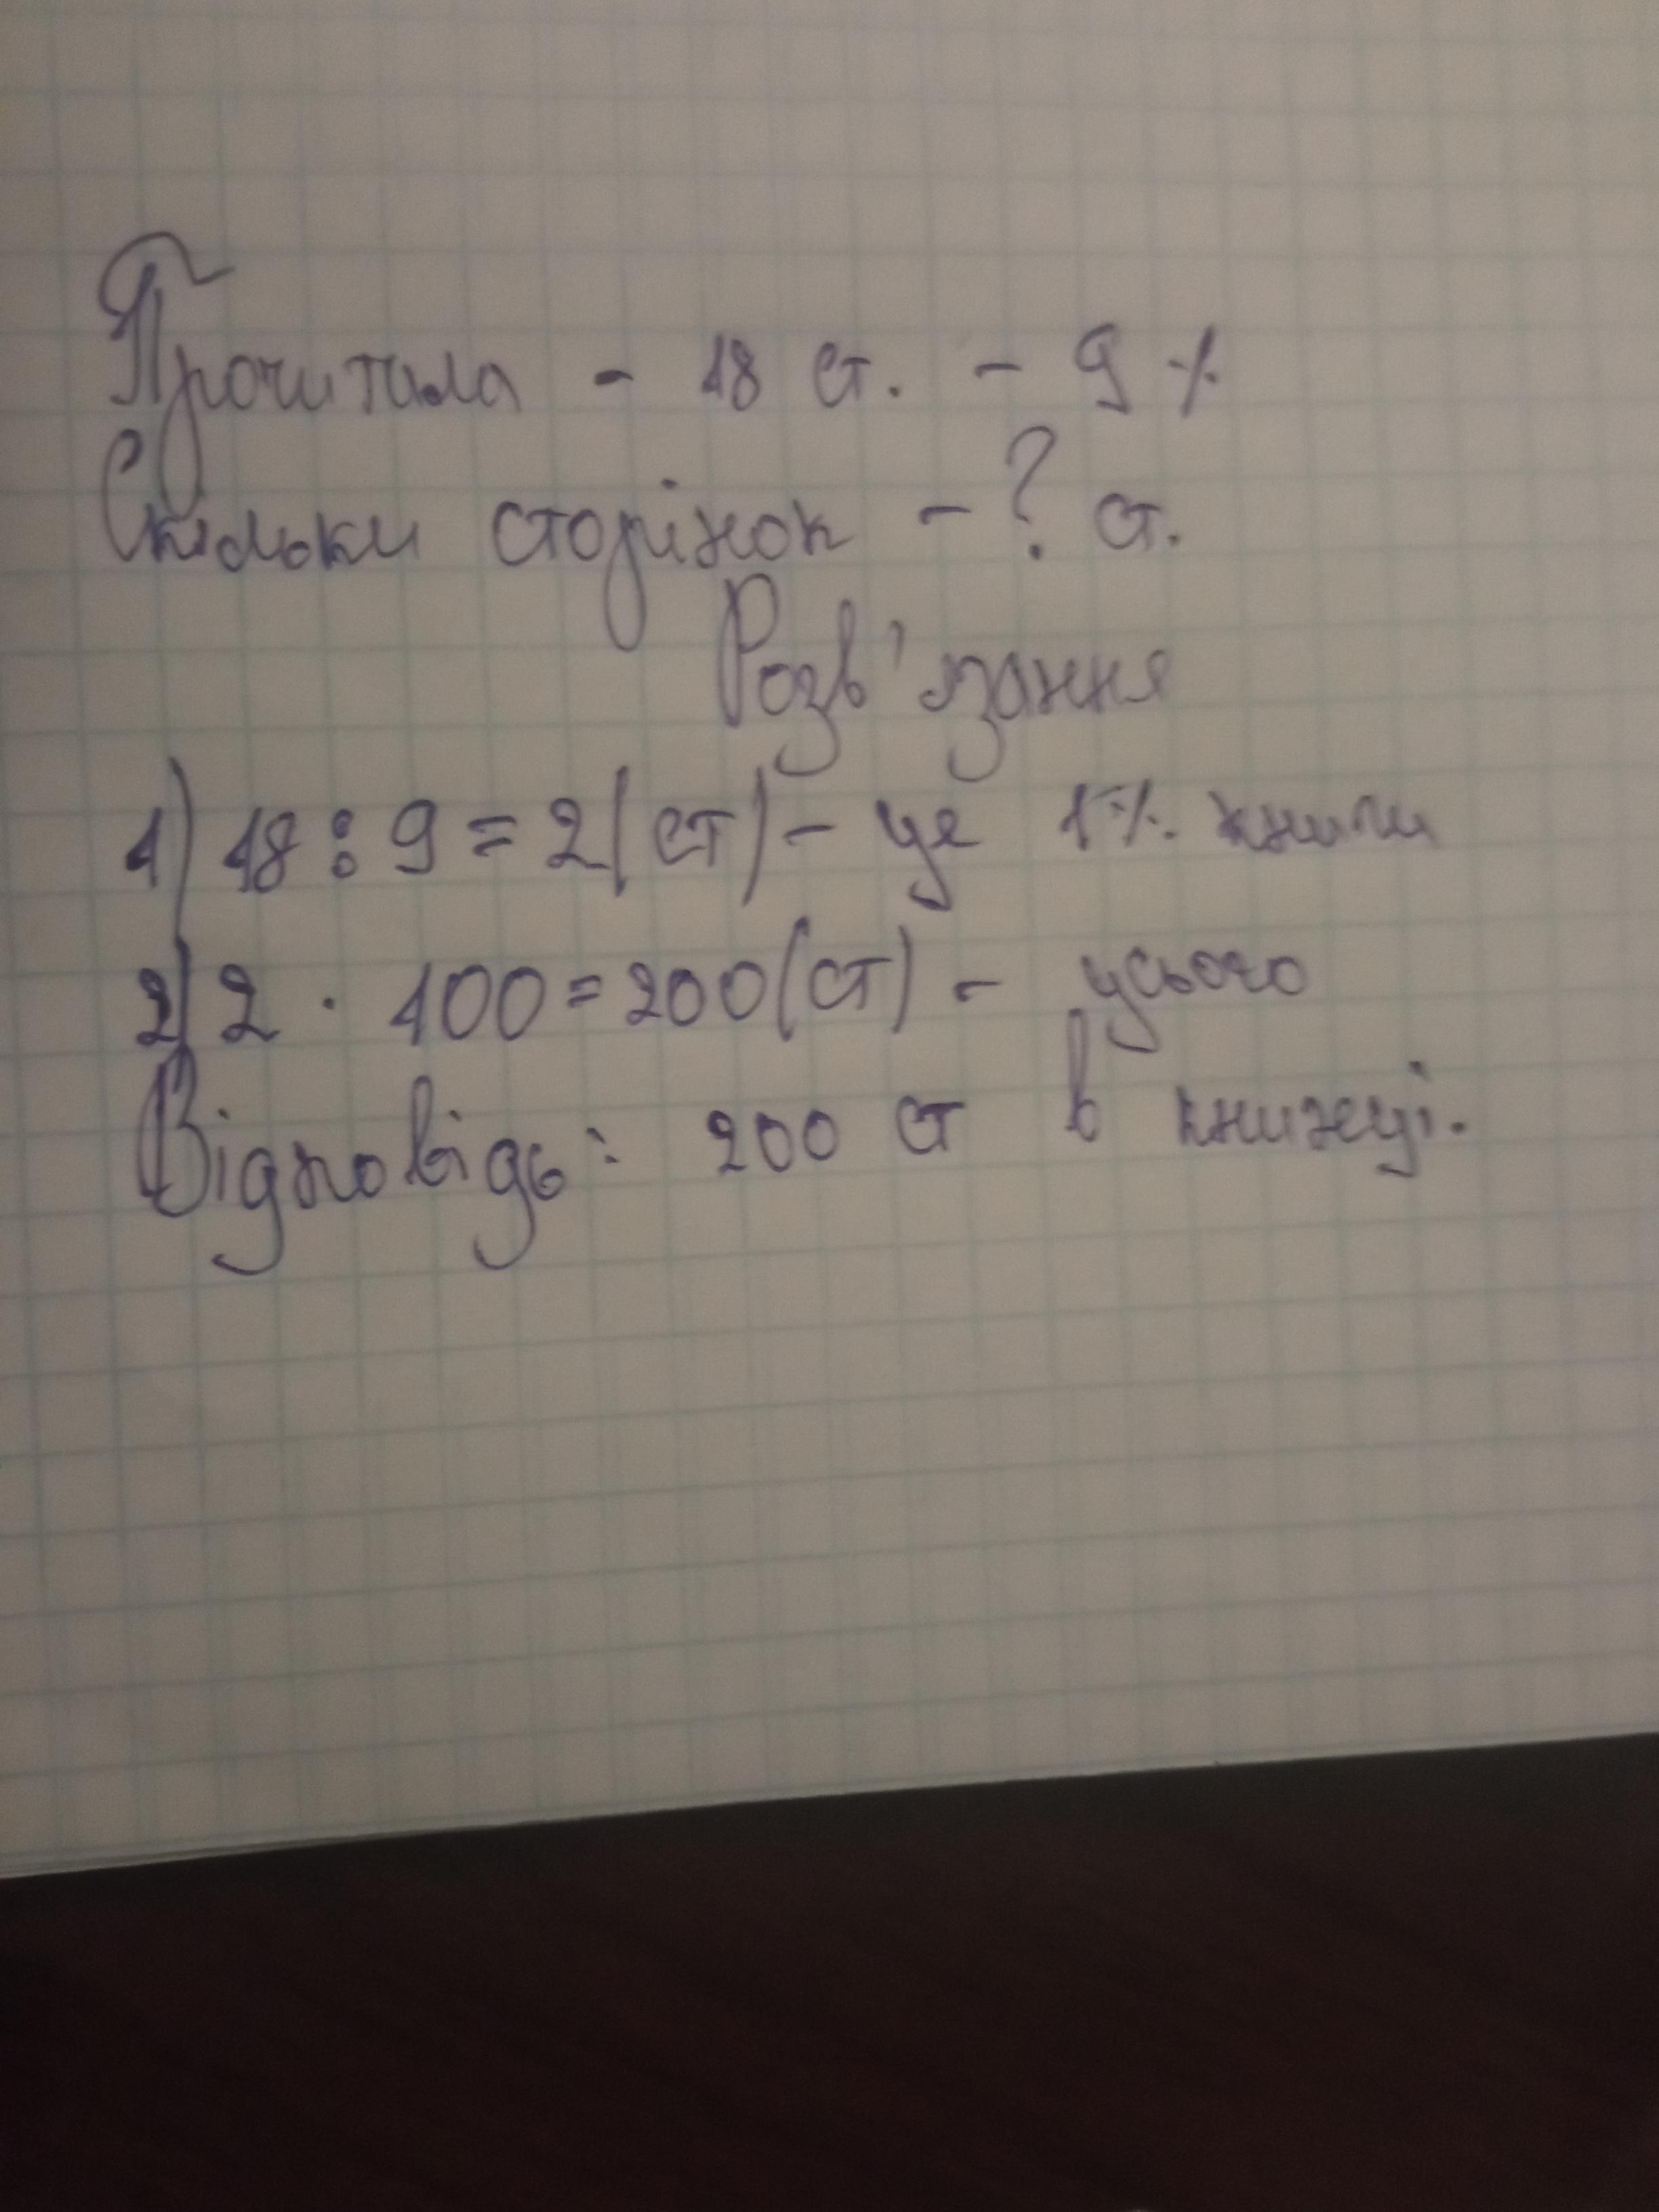 Прочитала - 18 ст. - 9 %
Скільки сторінок - ? ст.
Розв'язання
1) 18 : 9 = 2 (ст) - це 1 %. книги
2) 2 · 100 = 200 (ст) - усього
Відповідь: 200 ст в книжці.